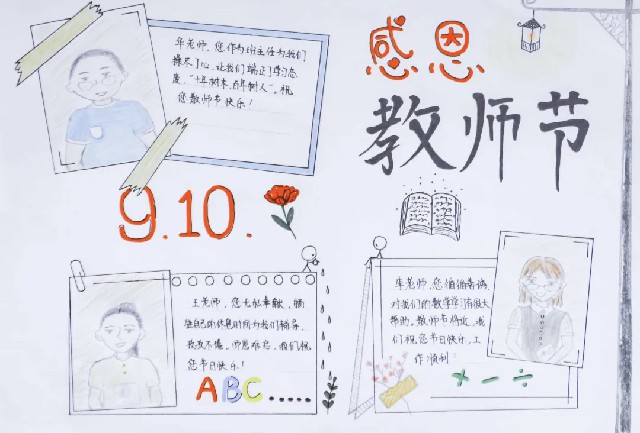 感恩
教师节
华老师，您作为班主任为我们
操尽了心，让我们端正了学习态
度，"十年树木，百年树人"。祝
您教师节快乐！
9.10.
王老师，您无私奉献，牺
牲自己的休息时间为我们辅导，
孜孜不倦。师恩难忘，我们祝
您节日快乐！
ABC.....
老师，您循循善诱，
对我们的数学学习有很大
帮助。教师节将近，我
们祝您节日快乐，工
作顺利！
+ - ÷